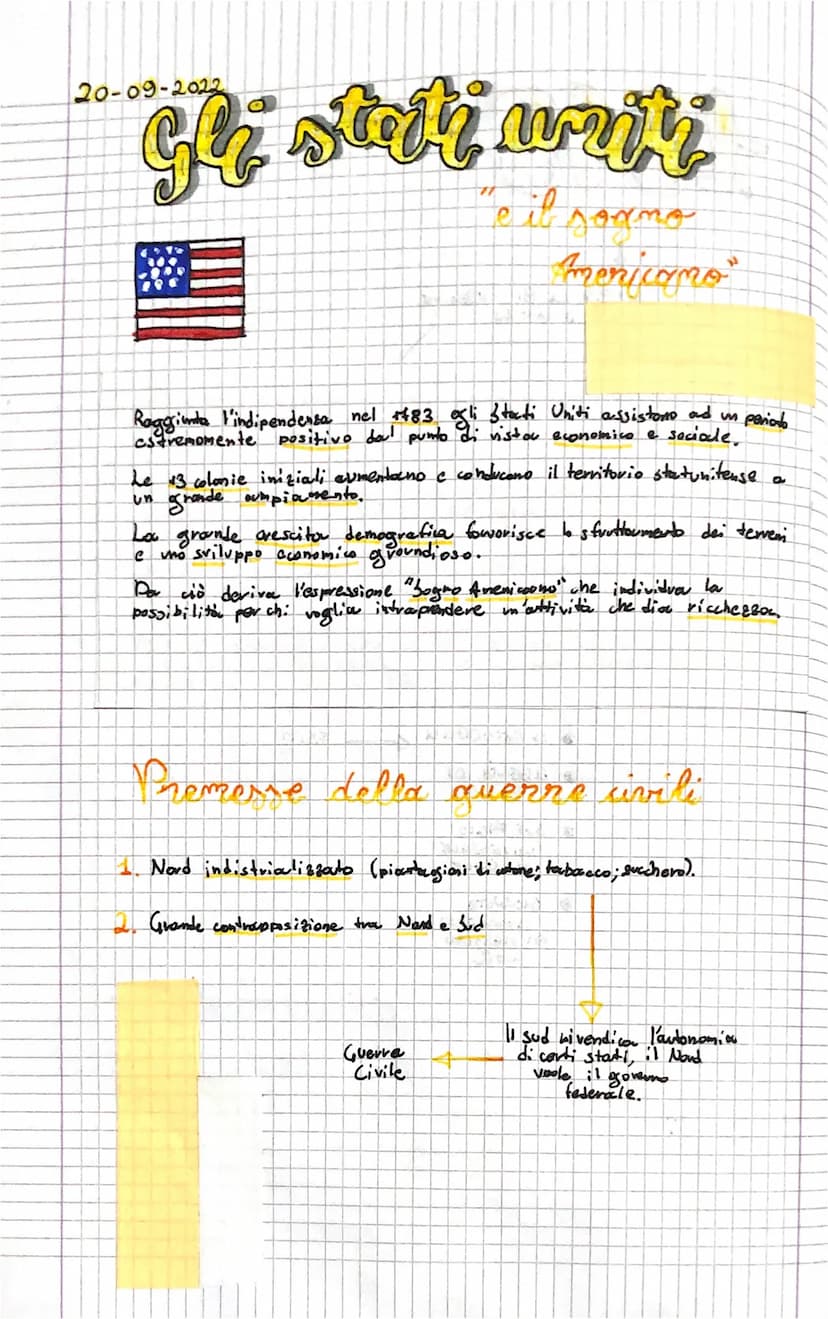 20-09-2022
Gli stati uniti
"e il sogno
Americano"
Raggiunta l'indipendenza nel 1783 gli Stati Uniti assistono ad un periodo
estremamente positivo dal punto di vista economico e sociale.
Le 13 colonie iniziali aumentano e conducono il territorio statunitense a
un grande ampiamento.
La grande crescita demografica favorisce lo sfruttamento dei terreni
e uno sviluppo economico grandioso.
Da ciò deriva l'espressione "Sogno Americano" che individua la
possibilità per chi voglia intraprendere un'attività che dia ricchezza.
Premesse della guerre civili
1. Nord indistrializzato (piantagioni di cotone; tabacco; zucchero).
2. Grande contrapposizione tra Nord e Sud
Il sud rivendica l'autonomia
di certi stati, il Nord
vuole il governo
federale.
Guerra
Civile